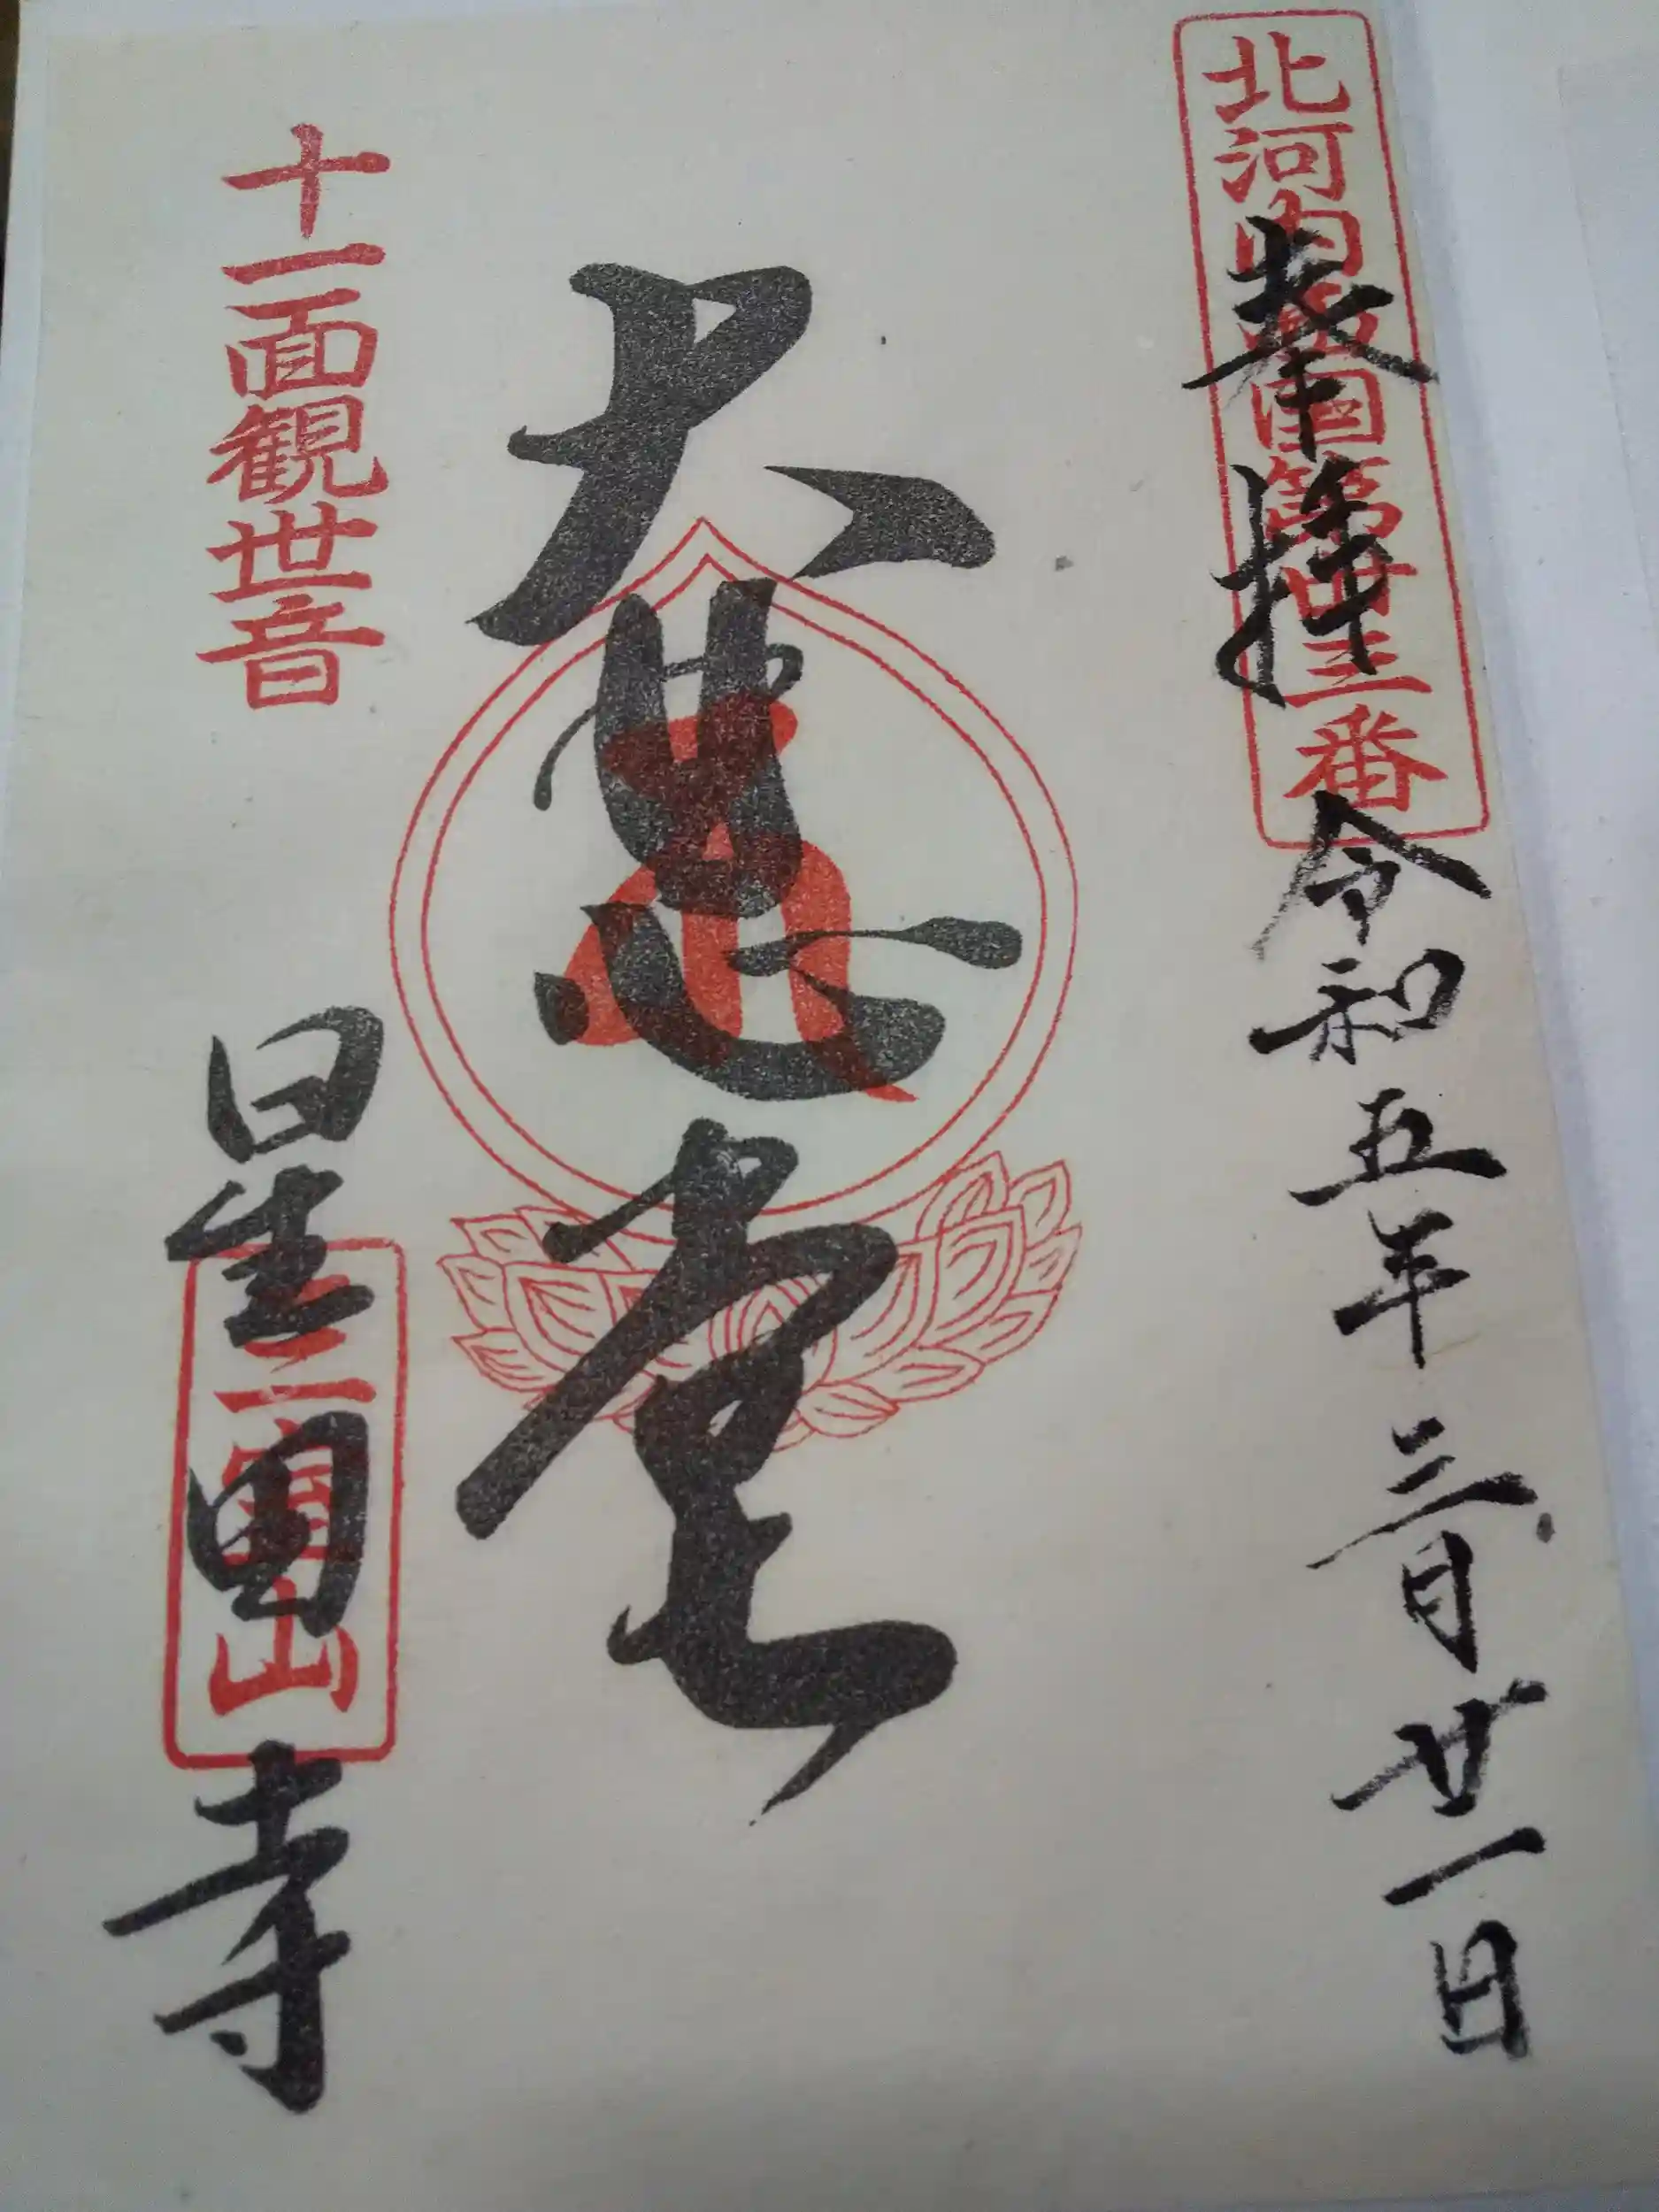 北河内西国第 三番
奉拝 令和五年三月廿一日
大悲堂
十一面観世音
星田寺
山